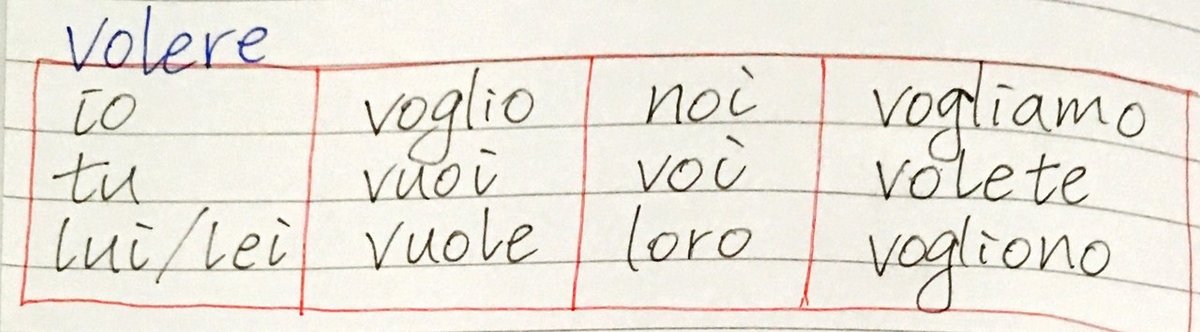 volere
io voglio noi vogliamo
tu vuoi voi volete
lui/lei vuole loro vogliono